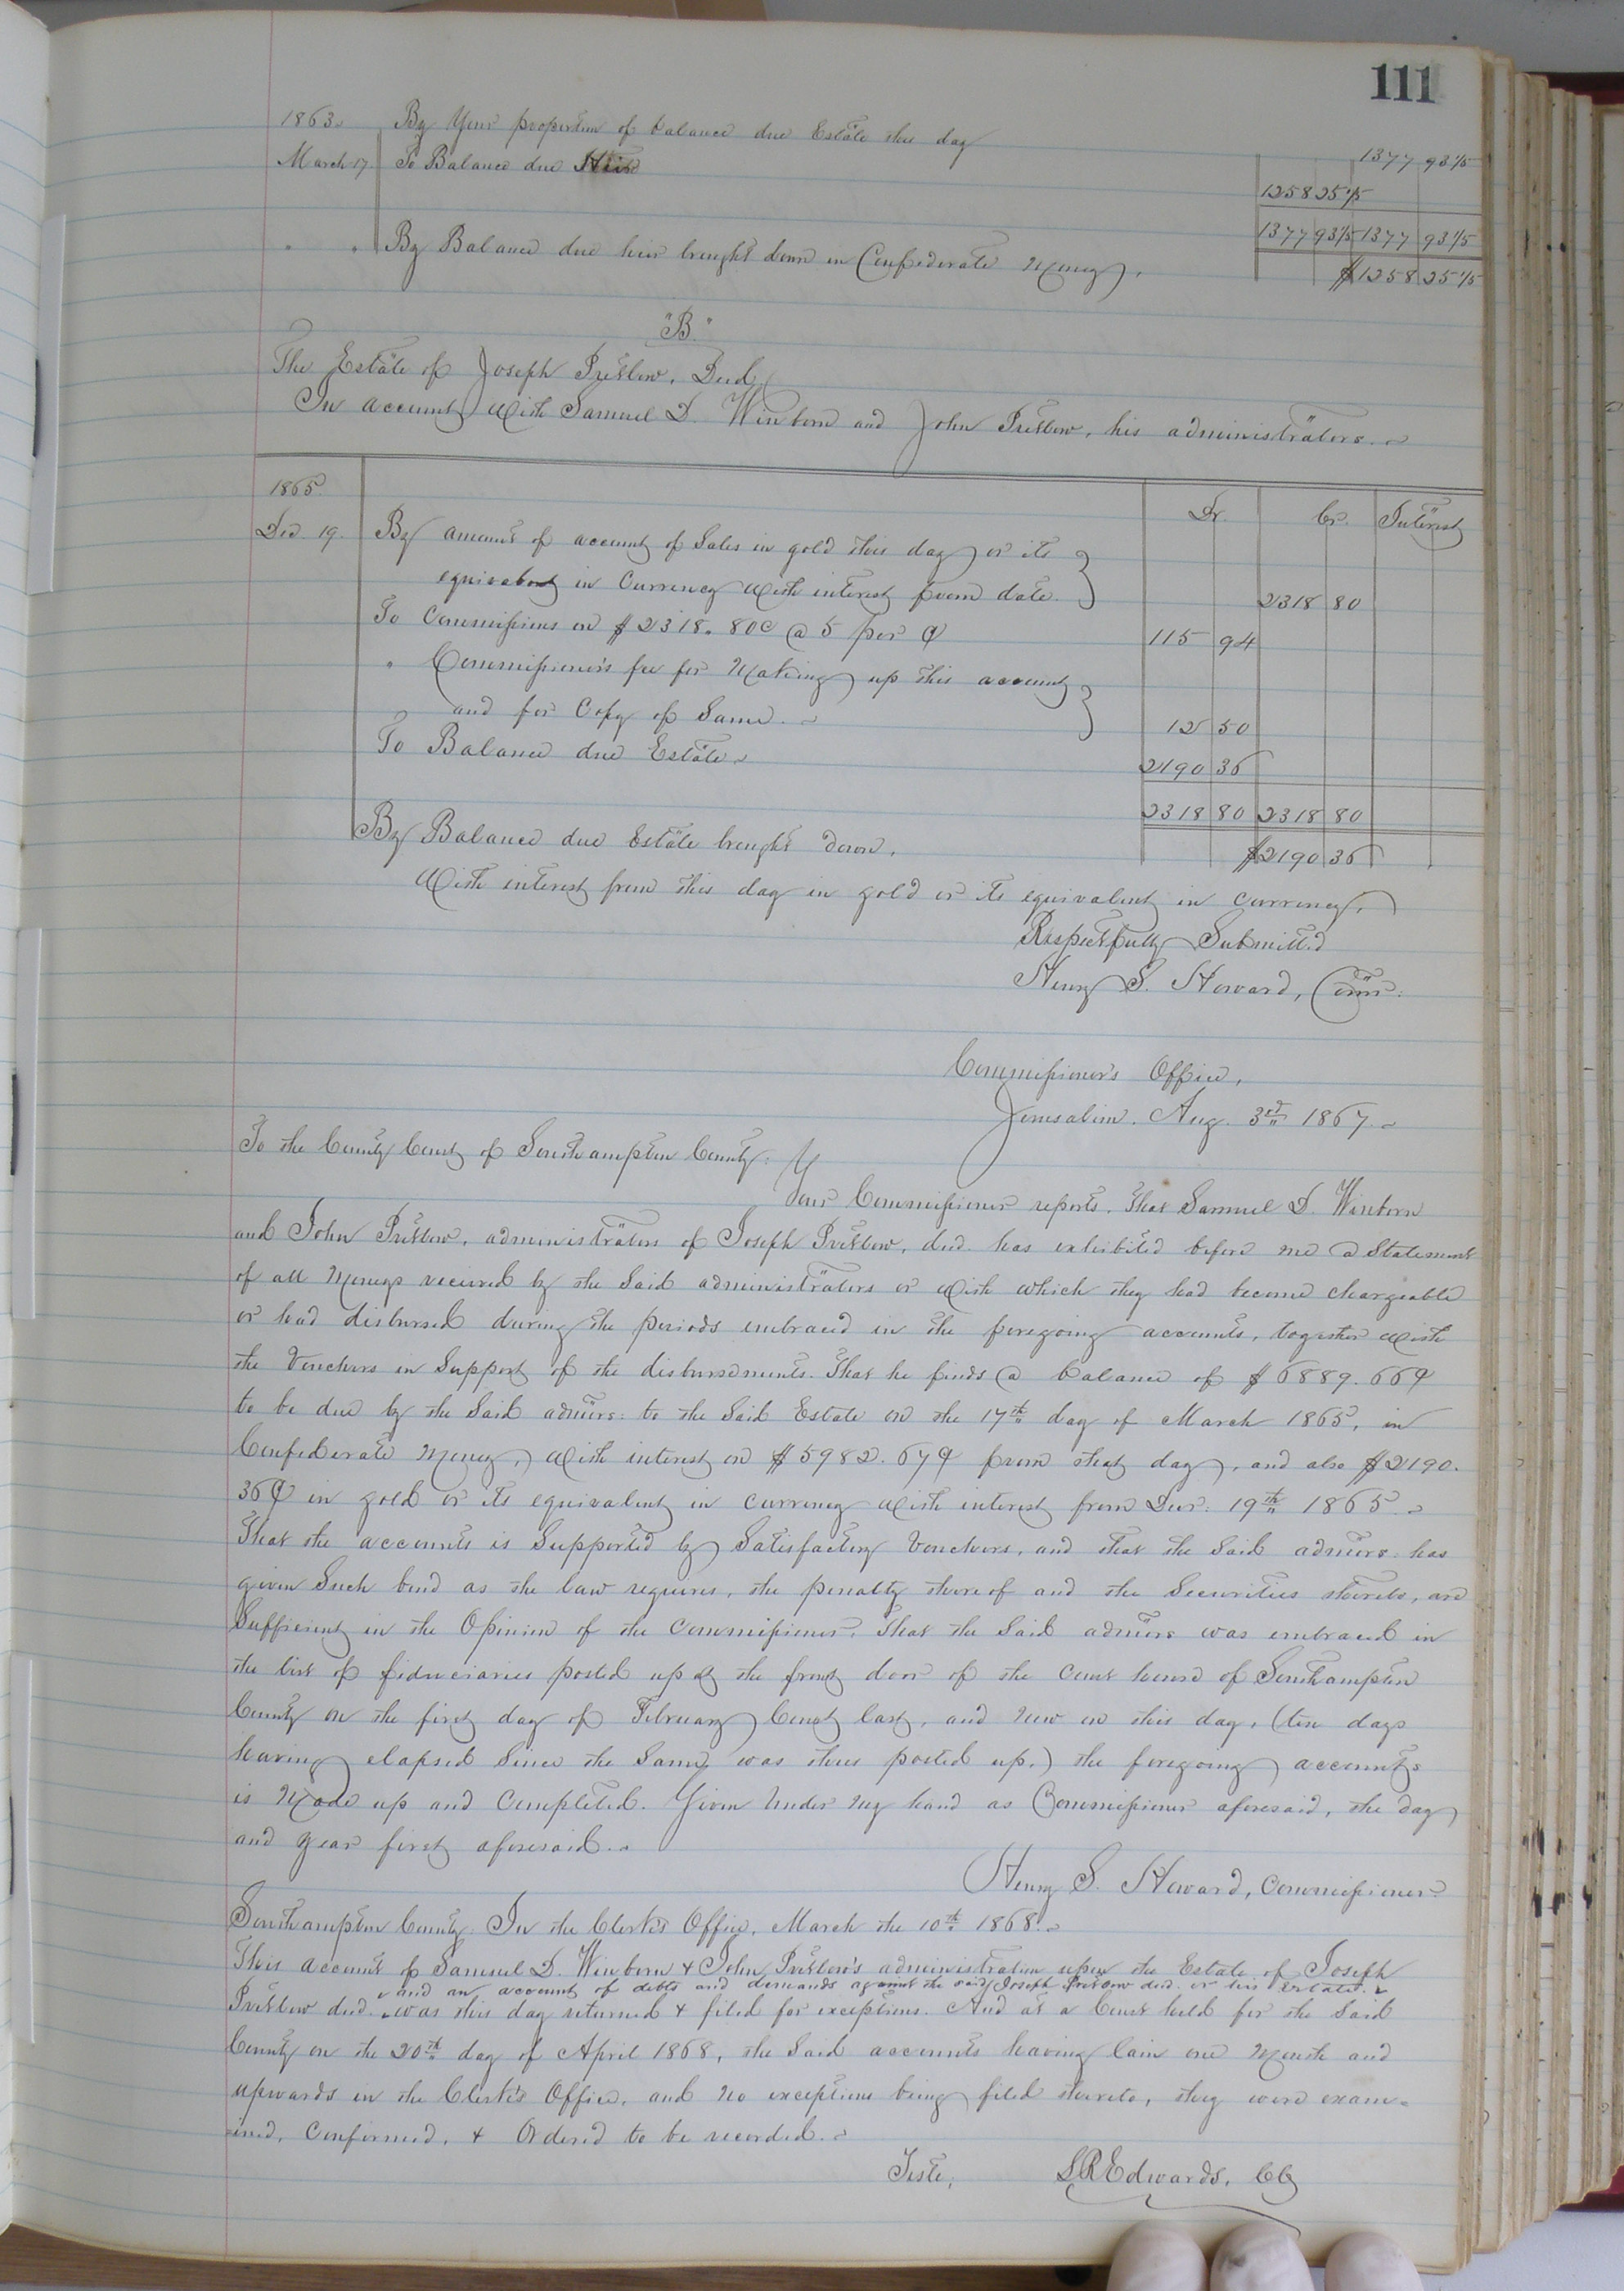 111
1863. By Your proportion of balance due Estate this day 1377 93 1/5
March 17. To Balance due Heir 1258 25 1/5
1377 93 1/5 1377 93 1/5
" " By Balance due heir brought down in Confederate Money. $1258 25 1/5
"B."
The Estate of Joseph Pretlow, Decd.
In account with Samuel D. Winborn and John Pretlow, his administrators.
1865. Dr. Cr. Interest
Dec 19. By amount of account of Sales in gold this day or its
equivalent in Currency with interest from date. 2318 80
To Commissions on $2318.80c @ 5 per ¢ 115 94
" Commissioner's fee for Making up this account
and for Copy of Same. 12 50
To Balance due Estate. 2190 36
2318 80 2318 80
By Balance due Estate brought down, $2190 36
With interest from this day in gold or its equivalent in currency.
Respectfully Submitted
Henry S. Howard, Comr:
Commissioner's Office,
Jerusalem. Aug. 3rd 1867.
To the County Court of Southampton County:
Your Commissioner reports, That Samuel D. Winborn
and John Pretlow, administrators of Joseph Pretlow, decd. has exhibited before me a Statement
of all Moneys received by the Said administrators or with which they had become chargeable
or had disbursed during the periods embraced in the foregoing accounts, together with
the Vouchers in Support of the disbursements. That he finds a balance of $6889.66¢
to be due by the Said admors: to the Said Estate on the 17th day of March 1863, in
Confederate Money, with interest on $5982.67¢ from that day, and also $2190.
36¢ in gold or its equivalent in currency with interest from Decr: 19th 1865.
That the accounts is Supported by Satisfactory Vouchers, and that the Said admors: has
given Such bond as the law requires, the penalty thereof and the Securities thereto, are
Sufficient in the Opinion of the Commissioner. That the Said admors was embraced in
the list of fiduciaries posted up at the front door of the Court house of Southampton
County on the first day of February Court last, and now on this day, (ten days
having elapsed Since the Same was thus posted up,) the foregoing accounts
is Made up and Completed. Given Under My hand as Commissioner aforesaid, the day
and year first aforesaid.
Henry S. Howard, Commissioner
Southampton County: In the Clerk's Office, March the 10th 1868.
This account of Samuel D. Winborn & John Pretlow's administration upon the Estate of Joseph
and an account of debts and demands against the said Joseph Pretlow decd. or his Estate.
Pretlow decd. was this day returned & filed for exceptions. And at a Court held for the Said
County on the 20th day of April 1868, the Said accounts having lain one Month and
upwards in the Clerk's Office, and no exceptions being filed thereto, they were exam-
-ined, Confirmed, & Ordered to be recorded.
Teste, LREdwards, CC